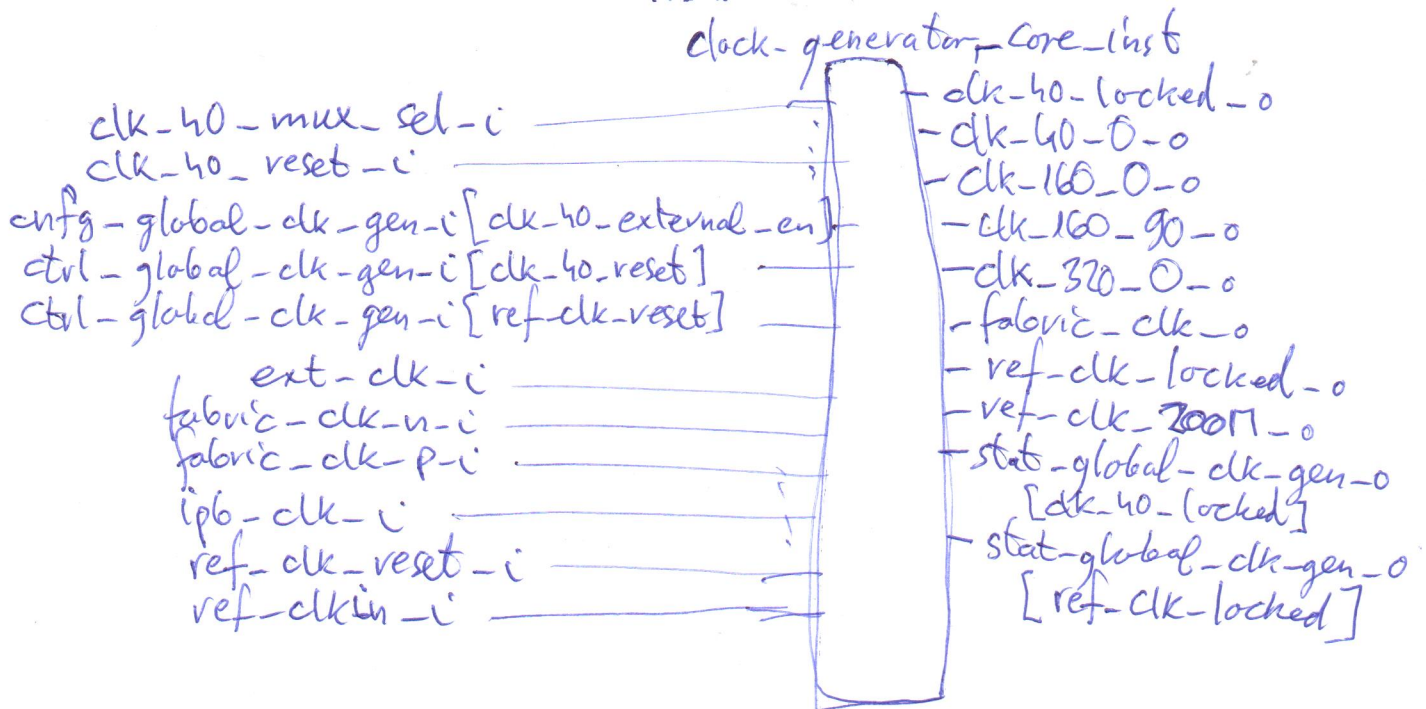 clock_generator_core_inst
clk_40_mux_sel_i
clk_40_reset_i
cnfg_global_clk_gen_i[clk_40_external_en]
ctrl_global_clk_gen_i[clk_40_reset]
ctrl_global_clk_gen_i[ref_clk_reset]
ext_clk_i
fabric_clk_n_i
fabric_clk_p_i
ipb_clk_i
ref_clk_reset_i
ref_clkin_i
clk_40_locked_o
clk_40_0_o
clk_160_0_o
clk_160_90_o
clk_320_0_o
fabric_clk_o
ref_clk_locked_o
ref_clk_200M_o
stat_global_clk_gen_o
[clk_40_locked]
stat_global_clk_gen_o
[ref_clk_locked]